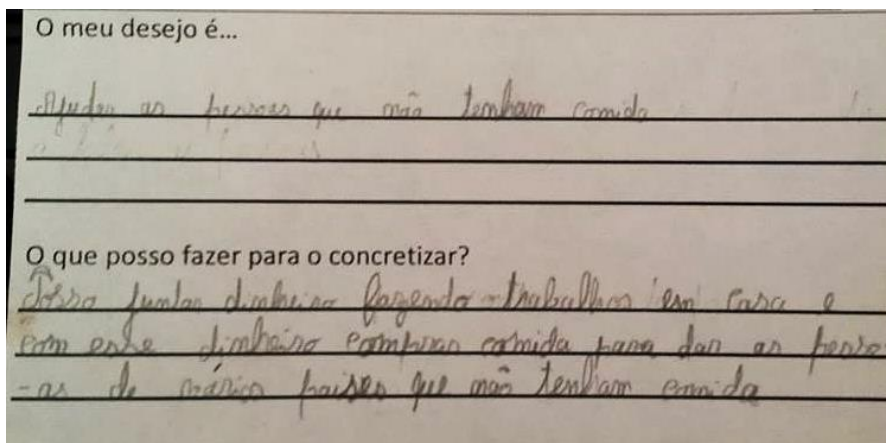 O meu desejo é...
Ajudar as pessoas que não tenham comida
O que posso fazer para o concretizar?
Posso juntar dinheiro fazendo trabalhos em casa e
com esse dinheiro comprar comida para dar as pesso
-as de vários paises que não tenham comida